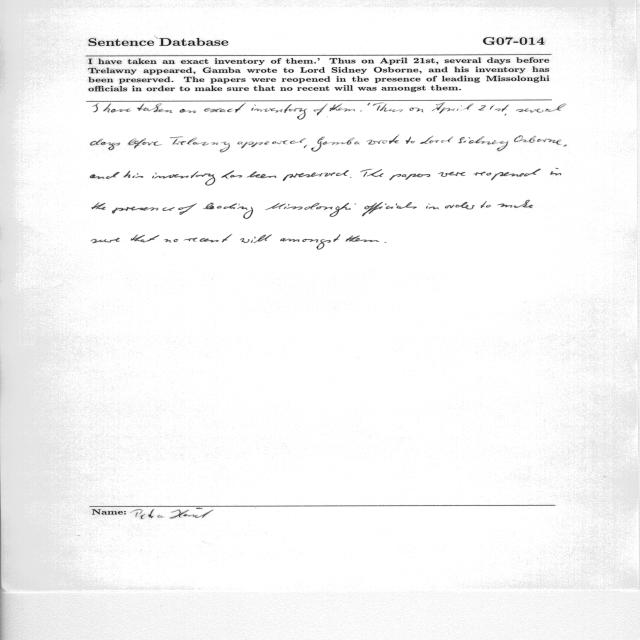 Sentence Database G07-014
I have taken an exact inventory of them.' Thus on April 21st, several days before
Trelawny appeared, Gamba wrote to Lord Sidney Osborne, and his inventory has
been preserved. The papers were reopened in the presence of leading Missolonghi
officials in order to make sure that no recent will was amongst them.
I have taken an exact inventory of them.' Thus on April 21st, several
days before Trelawny appeared, Gamba wrote to Lord Sidney Osborne,
and his inventory has been preserved. The papers were reopened in
the presence of leading Missolonghi officials in order to make
sure that no recent will amongst them.
Name: